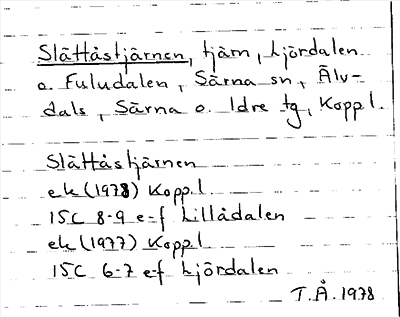 Slättåstjärnen, tjärn, Ljördalen
o. Fuludalen, Särna sn, Älv-
dals, Särna o. Idre tg, Koppl.
Slättåstjärnen
ek (1978) Koppl
15C 8-9 e-f Lillådalen
ek (1977) Koppl
15C 6-7 e-f Ljördalen
T.Å. 1978